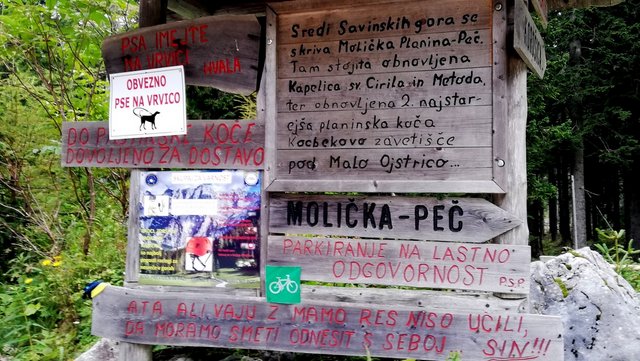 PSA IMEJTE
NA VRVICI
HVALA
OBVEZNO
PSE NA VRVICO
DO PASTIRSKE KOČE
DOVOLJENO ZA DOSTAVO
Sredi Savinskih gora se
skriva Molička Planina-Peč.
Tam stojita obnovljena
Kapelica sv. Cirila in Metoda,
ter obnovljena 2. najstar-
ejša planinska koča
Kocbekovo zavetišče
pod Malo Ojstrico...
MOLIČKA-PEČ
PARKIRANJE NA LASTNO
ODGOVORNOST P.S.P.
ATA ALI VAJU Z MAMO RES NISO UČILI,
DA MORAMO SMETI ODNESIT S SEBOJ SIN!!!